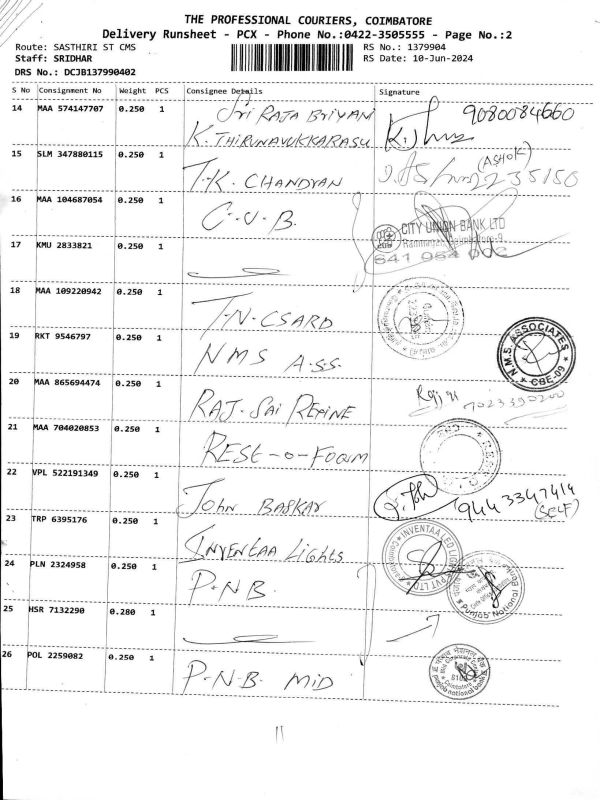 THE PROFESSIONAL COURIERS, COIMBATORE
Delivery Runsheet - PCX - Phone No.:0422-3505555 - Page No.:2
Route: SASTHIRI ST CMS RS No.: 1379904
Staff: SRIDHAR RS Date: 10-Jun-2024
DRS No.: DCJB137990402
S No Consignment No Weight PCS Consignee Details Signature
14 MAA 574147707 0.250 1 Sri RAJA BRIYANI 9080084660
K. THIRUNAVUKKARASU
15 SLM 347880115 0.250 1 T.K. CHANDYAN (ASHOK) 2235150
16 MAA 104687054 0.250 1 C.U.B. CITY UNION BANK LTD
Ramnagar, Coimbatore-9
641
17 KMU 2833821 0.250 1
18 MAA 109220942 0.250 1 T.N. CSARD
19 RKT 9546797 0.250 1 NMS ASS. N.M.S. ASSOCIATES
* CBE-09 *
20 MAA 865694474 0.250 1 RAJ. SAI REFINE 7023390200
21 MAA 704020853 0.250 1 REST-O-FOAM
22 VPL 522191349 0.250 1 JOHN BASKAR 9443347414
(SELF)
23 TRP 6395176 0.250 1 INVENTAA LIGHTS INVENTAA LED LIGHTS PVT LTD
24 PLN 2324958 0.250 1 P.N.B. Punjab National
25 HSR 7132290 0.280 1
26 POL 2259082 0.250 1 P.N.B. MID punjab national bank
Coimbatore